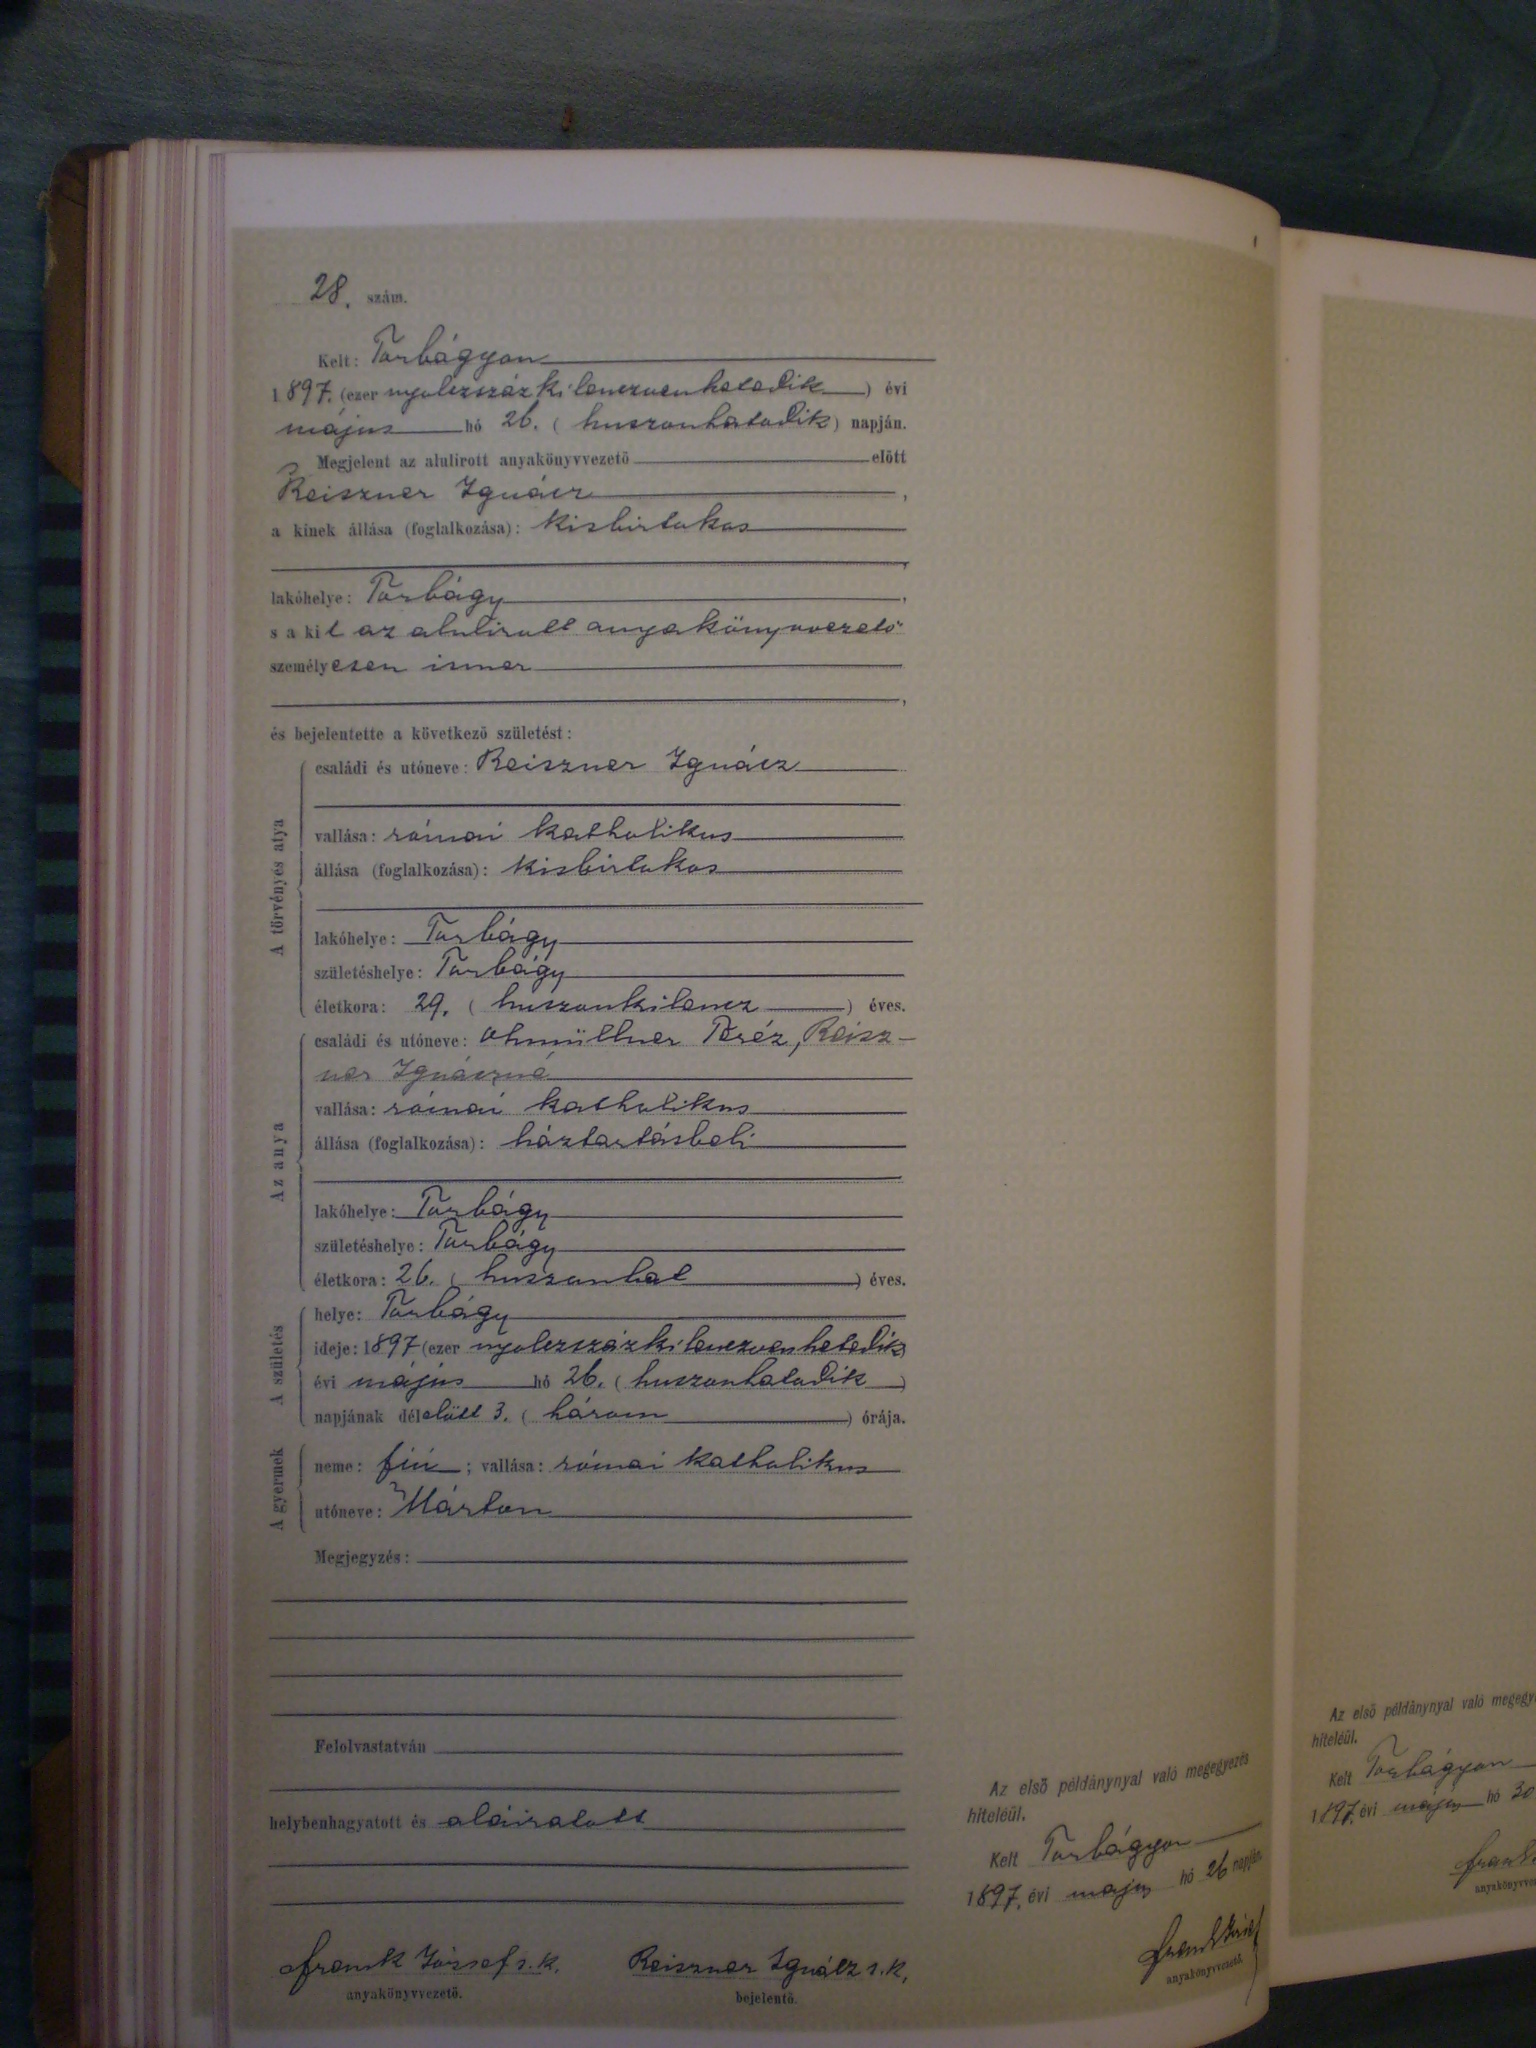 28. szám.
Kelt: Torbágyon
1897. (ezer nyolczszázkilenczvenhetedik) évi
május hó 26. (huszonhatodik) napján.
Megjelent az alulirott anyakönyvvezető előtt
Reiszner Ignácz,
a kinek állása (foglalkozása): kisbirtokos
,
lakóhelye: Torbágy,
s a kit az alulirott anyakönyvvezető
személyesen ismer
,
és bejelentette a következő születést:
A törvényes atya
családi és utóneve: Reiszner Ignácz
vallása: római katholikus
állása (foglalkozása): kisbirtokos
lakóhelye: Torbágy
születéshelye: Torbágy
életkora: 29. (huszonkilencz) éves.
Az anya
családi és utóneve: Ohmüllner Teréz, Reisz-
ner Ignáczné
vallása: római katholikus
állása (foglalkozása): háztartásbeli
lakóhelye: Torbágy
születéshelye: Torbágy
életkora: 26. (huszonhat) éves.
A születés
helye: Torbágy
ideje: 1897 (ezer nyolczszázkilenczvenhetedik)
évi május hó 26. (huszonhatodik)
napjának délelőtt 3. (három) órája.
A gyermek
neme: fiú; vallása: római katholikus
utóneve: Márton
Megjegyzés:
Felolvastatván
helybenhagyatott és aláiratott
Frank József s. k.
anyakönyvvezető.
Reiszner Ignácz s. k.
bejelentő.
Az első példánynyal való megegyezés
hiteléül.
Kelt Torbágyon
1897. évi május hó 26 napján.
Frank József
anyakönyvvezető.
Az első példánynyal való
hiteléül.
Kelt Torbágyon
1897. évi május hó 30